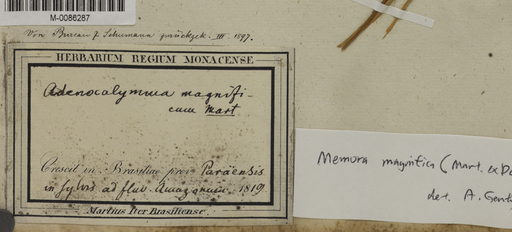 M-0086287
Von Bureau & Schumann zurückgek. III. 1897.
HERBARIUM REGIUM MONACENSE
Adenocalymna magnifi-
cum Mart
Crescit in Brasiliae prov. Paraensis
in sylvis ad fluv. Amazonum. 1819.
Martius Iter Brasiliense.
Memora magnifica (Mart. ex De
det. A. Gent